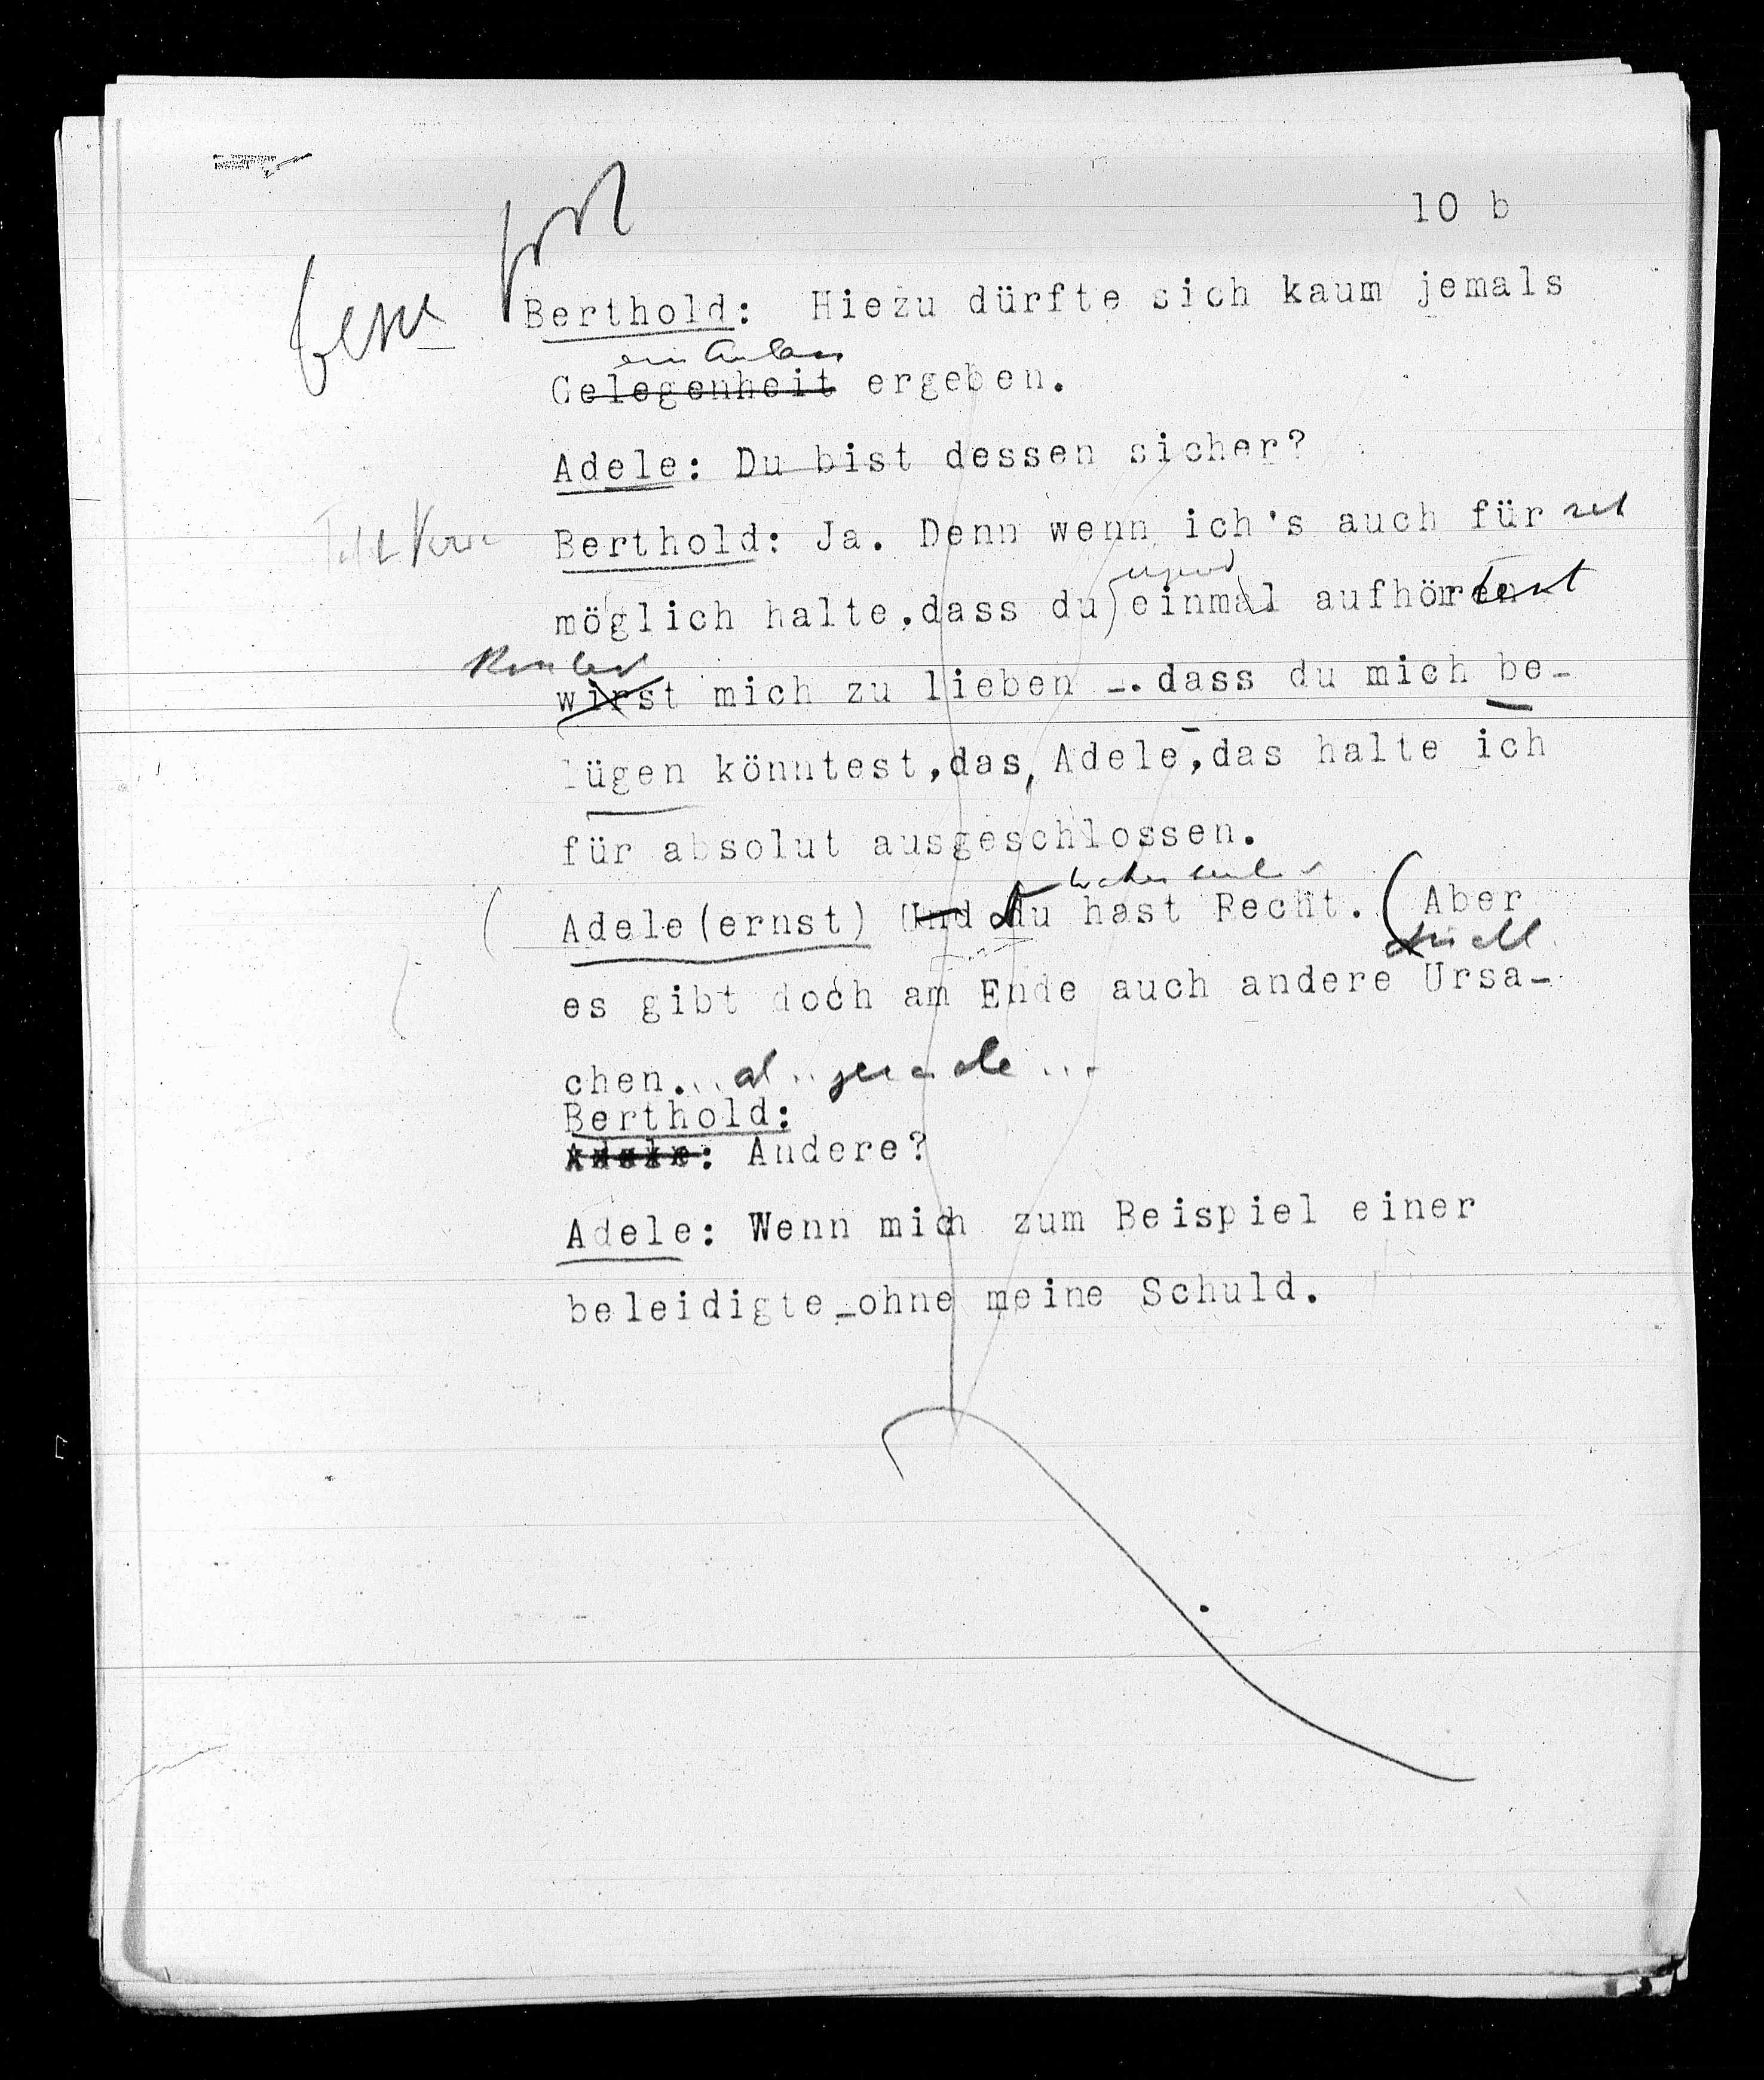 10 b
fort
Berthold: Hiezu dürfte sich kaum jemals
ein Anlass
Gelegenheit ergeben.
Adele: Du bist dessen sicher?
Berthold: Ja. Denn wenn ich's auch für
möglich halte, dass du einmal aufhören
wirst mich zu lieben -. dass du mich be-
lügen könntest, das, Adele, das halte ich
für absolut ausgeschlossen.
Adele (ernst) Und du hast Recht. (Aber
es gibt doch am Ende auch andere Ursa-
chen... als gerade ...
Berthold:
Adele: Andere?
Adele: Wenn mich zum Beispiel einer
beleidigte -ohne meine Schuld.